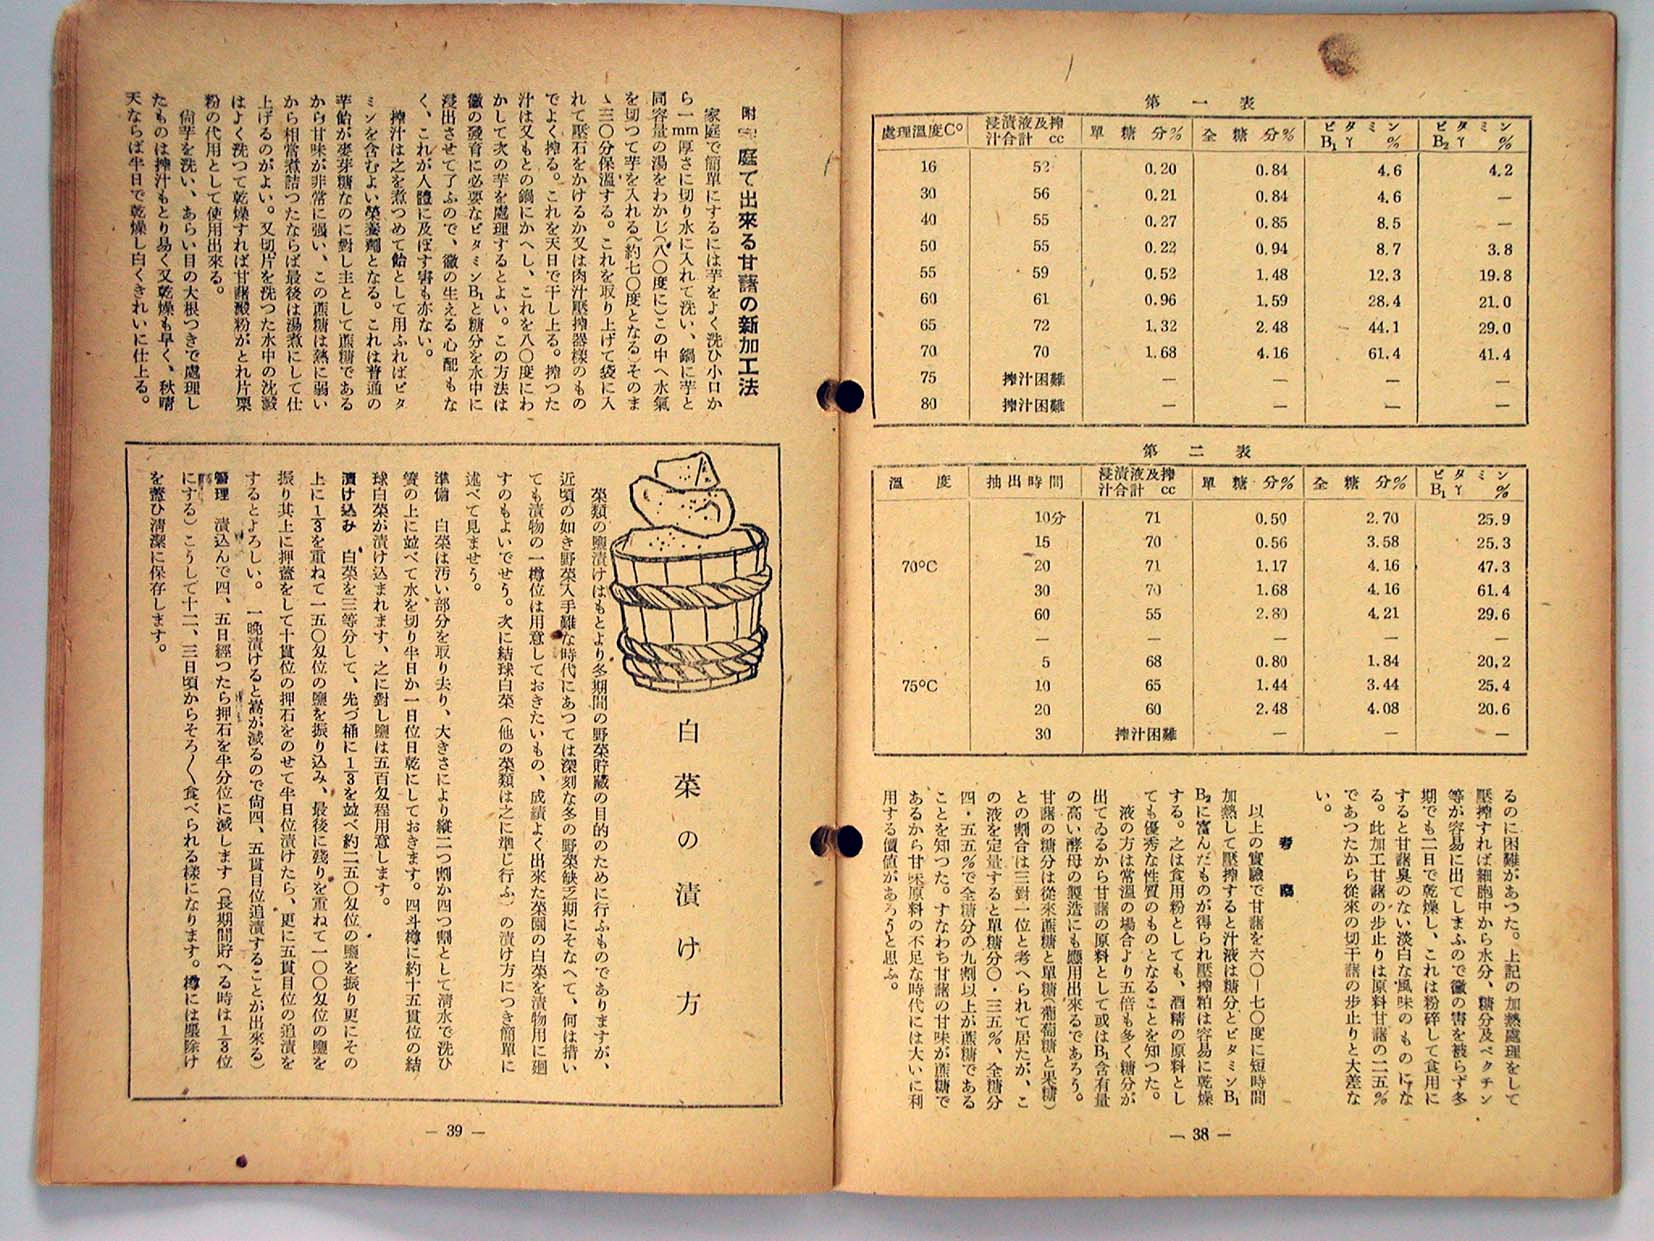 第一表
處理溫度C° 浸漬液及搾汁合計 cc 單糖分% 全糖分% ビタミンB₁ γ % ビタミンB₂ γ %
16 52 0.20 0.84 4.6 4.2
30 56 0.21 0.84 4.6 —
40 55 0.27 0.85 8.5 —
50 55 0.22 0.94 8.7 3.8
55 59 0.52 1.48 12.3 19.8
60 61 0.96 1.59 28.4 21.0
65 72 1.32 2.48 44.1 29.0
70 70 1.68 4.16 61.4 41.4
75 搾汁困難 — — — —
80 搾汁困難 — — — —
第二表
溫度 抽出時間 浸漬液及搾汁合計 cc 單糖分% 全糖分% ビタミンB₁ γ %
10分 71 0.50 2.70 25.9
15 70 0.56 3.58 25.3
70°C 20 71 1.17 4.16 47.3
30 70 1.68 4.16 61.4
60 55 2.80 4.21 29.6
— — — — —
5 68 0.80 1.84 20.2
75°C 10 65 1.44 3.44 25.4
20 60 2.48 4.08 20.6
30 搾汁困難 — — —
るのに困難があつた。上記の加熱處理をして
壓搾すれば細胞中から水分、糖分及ペクチン
等が容易に出てしまふので黴の害を被らず冬
期でも二日で乾燥し、これは粉碎して食用に
すると甘藷臭のない淡白な風味のものにな
る。此加工甘藷の步止りは原料甘藷の二五%
であつたから從來の切干藷の步止りと大差な
い。
考察
以上の實驗で甘藷を六〇—七〇度に短時間
加熱して壓搾すると汁液は糖分とビタミンB₁
B₂に富んだものが得られ壓搾粕は容易に乾燥
する。之は食用粉としても、酒精の原料とし
ても優秀な性質のものとなることを知つた。
液の方は常溫の場合より五倍も多く糖分が
出てゐるから甘藷の原料として或はB₁含有量
の高い酵母の製造にも應用出來るであろう。
甘藷の糖分は從來蔗糖と單糖(葡萄糖と果糖)
との割合は三對一位と考へられて居たが、こ
の液を定量すると單糖分〇・三五%、全糖分
四・五五%で全糖分の九割以上が蔗糖である
ことを知つた。すなわち甘藷の甘味が蔗糖で
あるから甘味原料の不足な時代には大いに利
用する價値があろうと思ふ。
— 38 —
附 家庭で出來る甘藷の新加工法
家庭で簡單にするには芋をよく洗ひ小口か
ら一mm厚さに切り水に入れて洗い、鍋に芋と
同容量の湯をわかし(八〇度に)この中へ水氣
を切つて芋を入れる(約七〇度となる)そのま
ゝ三〇分保溫する。これを取り上げて袋に入
れて壓石をかけるか又は肉汁壓搾器樣のもの
でよく搾る。これを天日で干し上る。搾つた
汁は又もとの鍋にかへし、これを八〇度にわ
かして次の芋を處理するとよい。この方法は
黴の發育に必要なビタミンB₁と糖分を水中に
浸出させて了ふので、黴の生える心配もな
く、これが人體に及ぼす害も亦ない。
搾汁は之を煮つめて飴として用ふればビタ
ミンを含むよい榮養劑となる。これは普通の
芋飴が麥芽糖なのに對し主として蔗糖である
から甘味が非常に强い、この蔗糖は熱に弱い
から相當煮詰つたならば最後は湯煮にして仕
上げるのがよい。又切片を洗つた水中の沈澱
はよく洗つて乾燥すれば甘藷澱粉がとれ片栗
粉の代用として使用出來る。
尙芋を洗い、あらい目の大根つきで處理し
たものは搾汁もとり易く又乾燥も早く、秋晴
天ならば半日で乾燥し白くきれいに仕上る。
白菜の漬け方
菜類の鹽漬けはもとより冬期間の野菜貯藏の目的のために行ふものでありますが、
近頃の如き野菜入手難な時代にあつては深刻な冬の野菜缺乏期にそなへて、何は措い
ても漬物の一樽位は用意しておきたいもの、成績よく出來た菜園の白菜を漬物用に廻
すのもよいでせう。次に結球白菜(他の菜類は之に準じ行ふ)の漬け方につき簡單に
述べて見ませう。
準備 白菜は汚い部分を取り去り、大きさにより縱二つ割か四つ割として淸水で洗ひ
簀の上に竝べて水を切り半日か一日位日乾にしておきます。四斗樽に約十五貫位の結
球白菜が漬け込まれます、之に對し鹽は五百匁程用意します。
漬け込み 白菜を三等分して、先づ桶に1/3を竝べ約二五〇匁位の鹽を振り更にその
上に1/3を重ねて一五〇匁位の鹽を振り込み、最後に殘りを重ねて一〇〇匁位の鹽を
振り其上に押蓋をして十貫位の押石をのせて半日位漬けたら、更に五貫目位の追漬を
するとよろしい。一晩漬けると嵩が減るので尙四、五貫目位追漬することが出來る)
管理 漬込んで四、五日經つたら押石を半分位に減します(長期間貯へる時は1/3位
にする)こうして十二、三日頃からそろ〳〵食べられる樣になります。樽には塵除け
を蓋ひ淸潔に保存します。
— 39 —